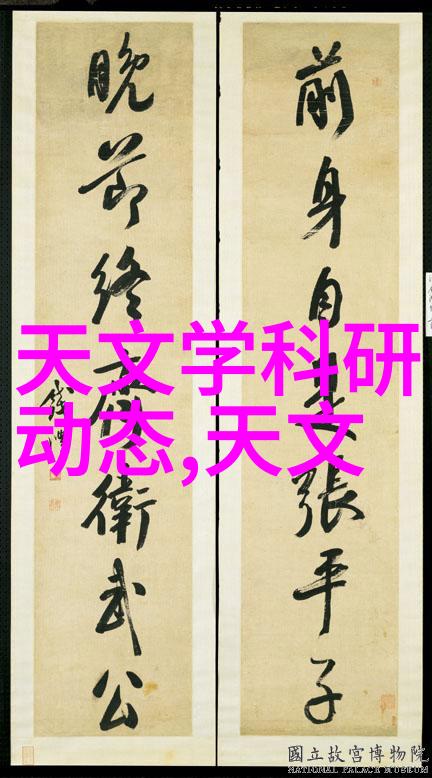 前身自是張平子
晚節終廉衛武公
錢灃
天文学科研
动态,天文
國立故宮博物院
NATIONAL PALACE MUSEUM